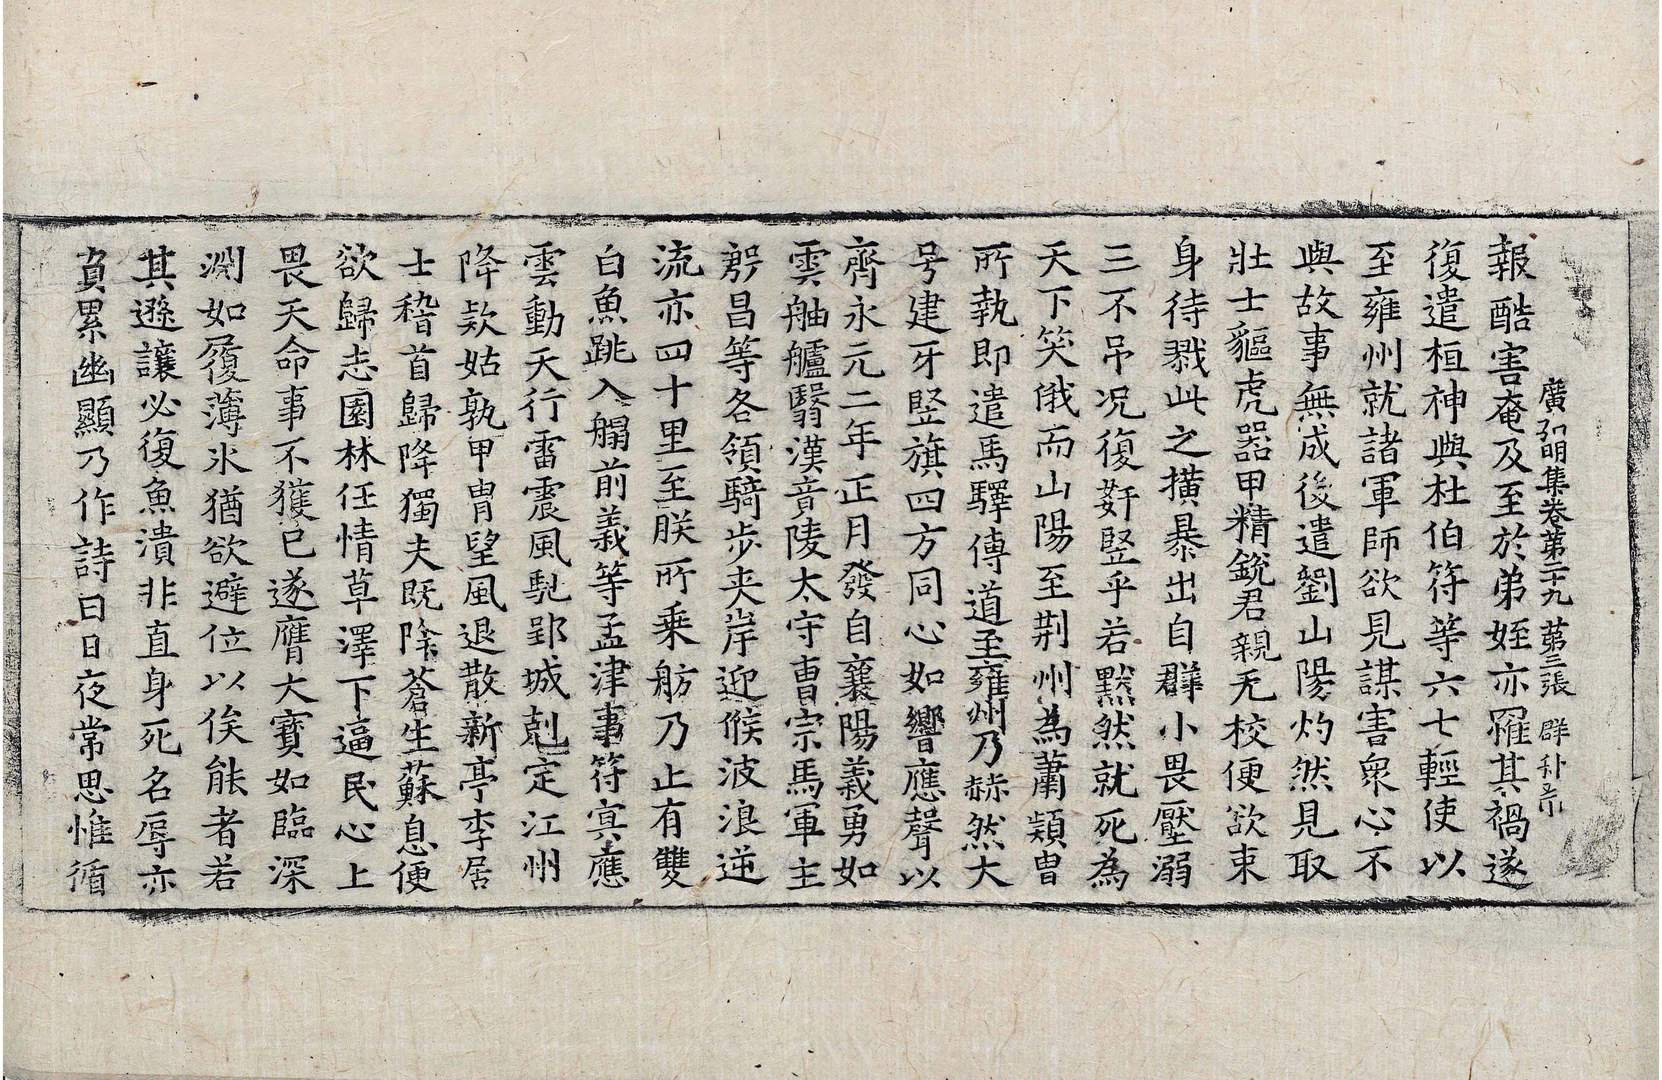 報酷害奄及至於弟姪亦羅其禍遂
廣弘明集卷第二十九 第三張 群
復遣桓神與杜伯符等六七輕使以
至雍州就諸軍師欲見謀害衆心不
與故事無成後遣劉山陽灼然見取
壯士貙虎器甲精銳君親无校便欲束
身待戮此之擴暴出自群小畏壓溺
三不吊况復姧竪乎若黙然就死為
天下笑俄而山陽至荆州為蕭穎冑
所執即遣馬驛傳道至雍州乃赫然大
号建牙竪旗四方同心如響應聲以
齊永元二年正月發自襄陽義勇如
雲舳艫翳漢竟陵太守曹宗馬軍主
昌等各領騎步夾岸迎候波浪逆
流亦四十里至朕所乗舫乃止有雙
白魚跳入艒前義等孟津事符冥應
雲動天行雷震風馳郢城剋定江州
降欵姑孰甲冑望風退散新亭李居
士稽首歸降獨夫既除蒼生蘇息便
欲歸志園林任情草澤下逼民心上
畏天命事不獲已遂膺大寳如臨深
淵如履薄氷猶欲避位以俟能者若
其遜讓必復魚潰非直身死名辱亦
負累幽顯乃作詩曰日夜常思惟循